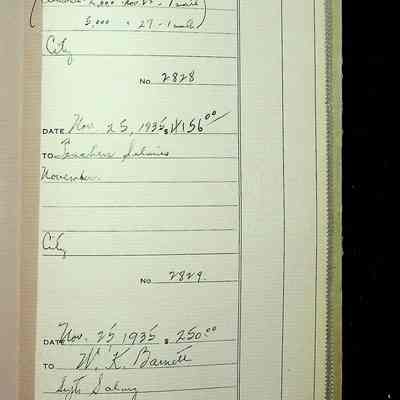 2,000 Nov 25 - 1 mill
5,000 " 27 - 1 mill)
City
No. 2828
DATE Nov. 25, 1935 $4156.00
TO Teachers Salaries
November
City
No. 2829
DATE Nov. 25 1935 $250.00
TO W. K. Barnett
Supts Salary